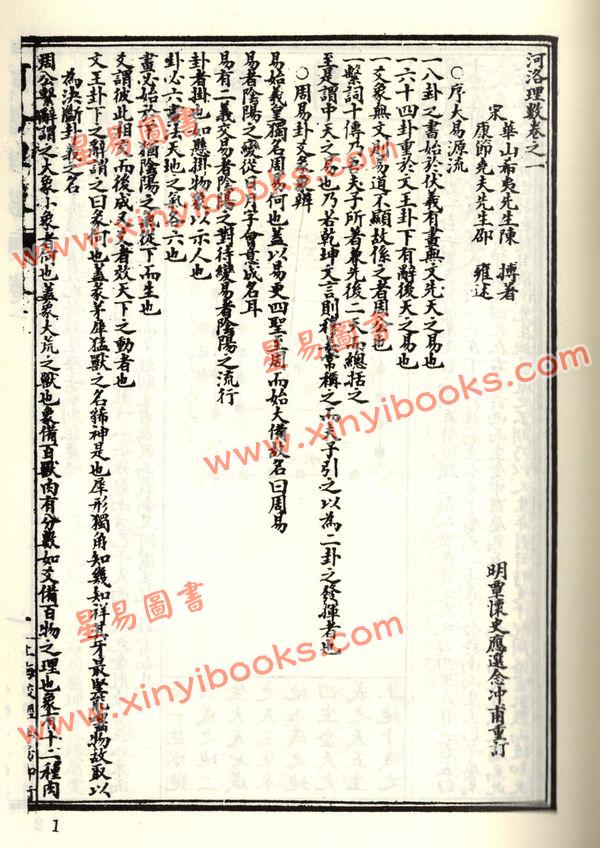 河洛理數卷之一
宋
華山希夷先生陳 摶著
康節堯夫先生邵 雍述
明覃懷史應選念冲甫重訂
○序大易源流
一八卦之書始於伏羲有畫無文先天之易也
一六十四卦重於文王卦下有辭後天之易也
一爻象無文則易道不顯故係之者周公也
一繫詞十傳乃孔夫子所著象先後二天而總括之
至是謂中天之易也乃若乾坤文言則穆姜常稱之而夫子引之以為二卦之發揮者也
○周易卦爻名義辨
易始羲皇獨名周易何也蓋以易更四聖至周而始大備故名曰周易
易者陰陽之變從日月字會意成名耳
易有二義交易者陰陽之對待變易者陰陽之流行
卦者掛也如懸掛物象以示人也
卦必六畫法天地之氣各六也
畫必始於下猶陰陽之氣從下而生也
爻謂彼此相交而後成又爻者效天下之動者也
文王卦下之辭謂之曰彖何也蓋彖茅犀猛獸之名豨神是也犀形獨角知幾知祥其牙最堅能齧物故取以
為決斷卦義之名
周公繫辭謂之大象小象者何也蓋象大荒之獸也象備百獸肉有分數如爻備百物之理也象有十二種肉
上海校經山房印行
星易圖書
www.xinyibooks.com
星易圖書
www.xinyibooks.com
星易圖書
www.xinyibooks.com
1